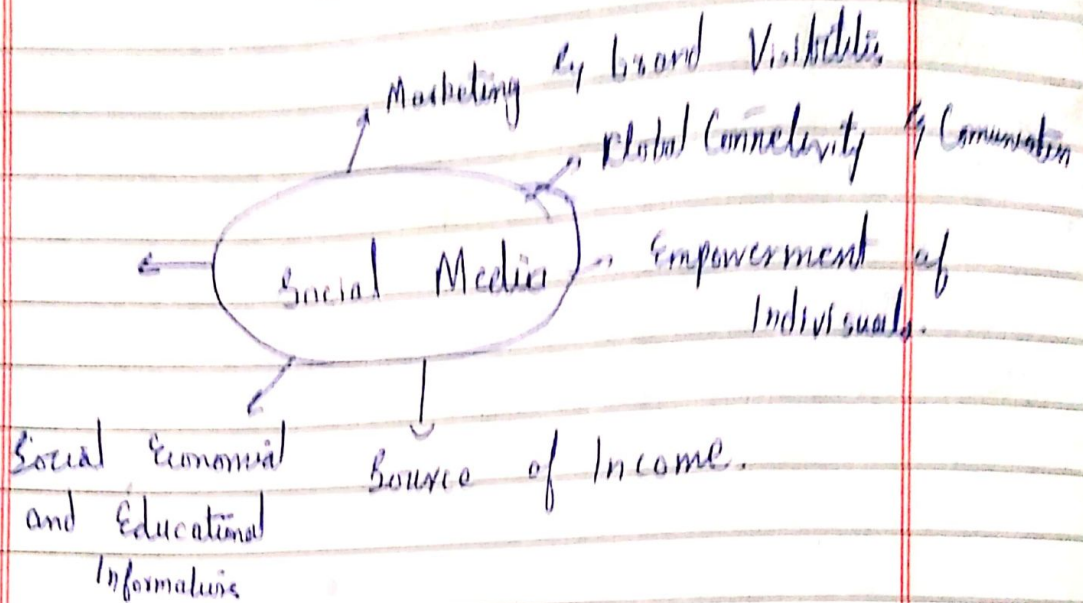 Marketing & brand Visibility
Global Connectivity & Comunication
Social Media
Empowerment of
Indivisuals.
Social Economial
and Educational
Informations
Source of Income.